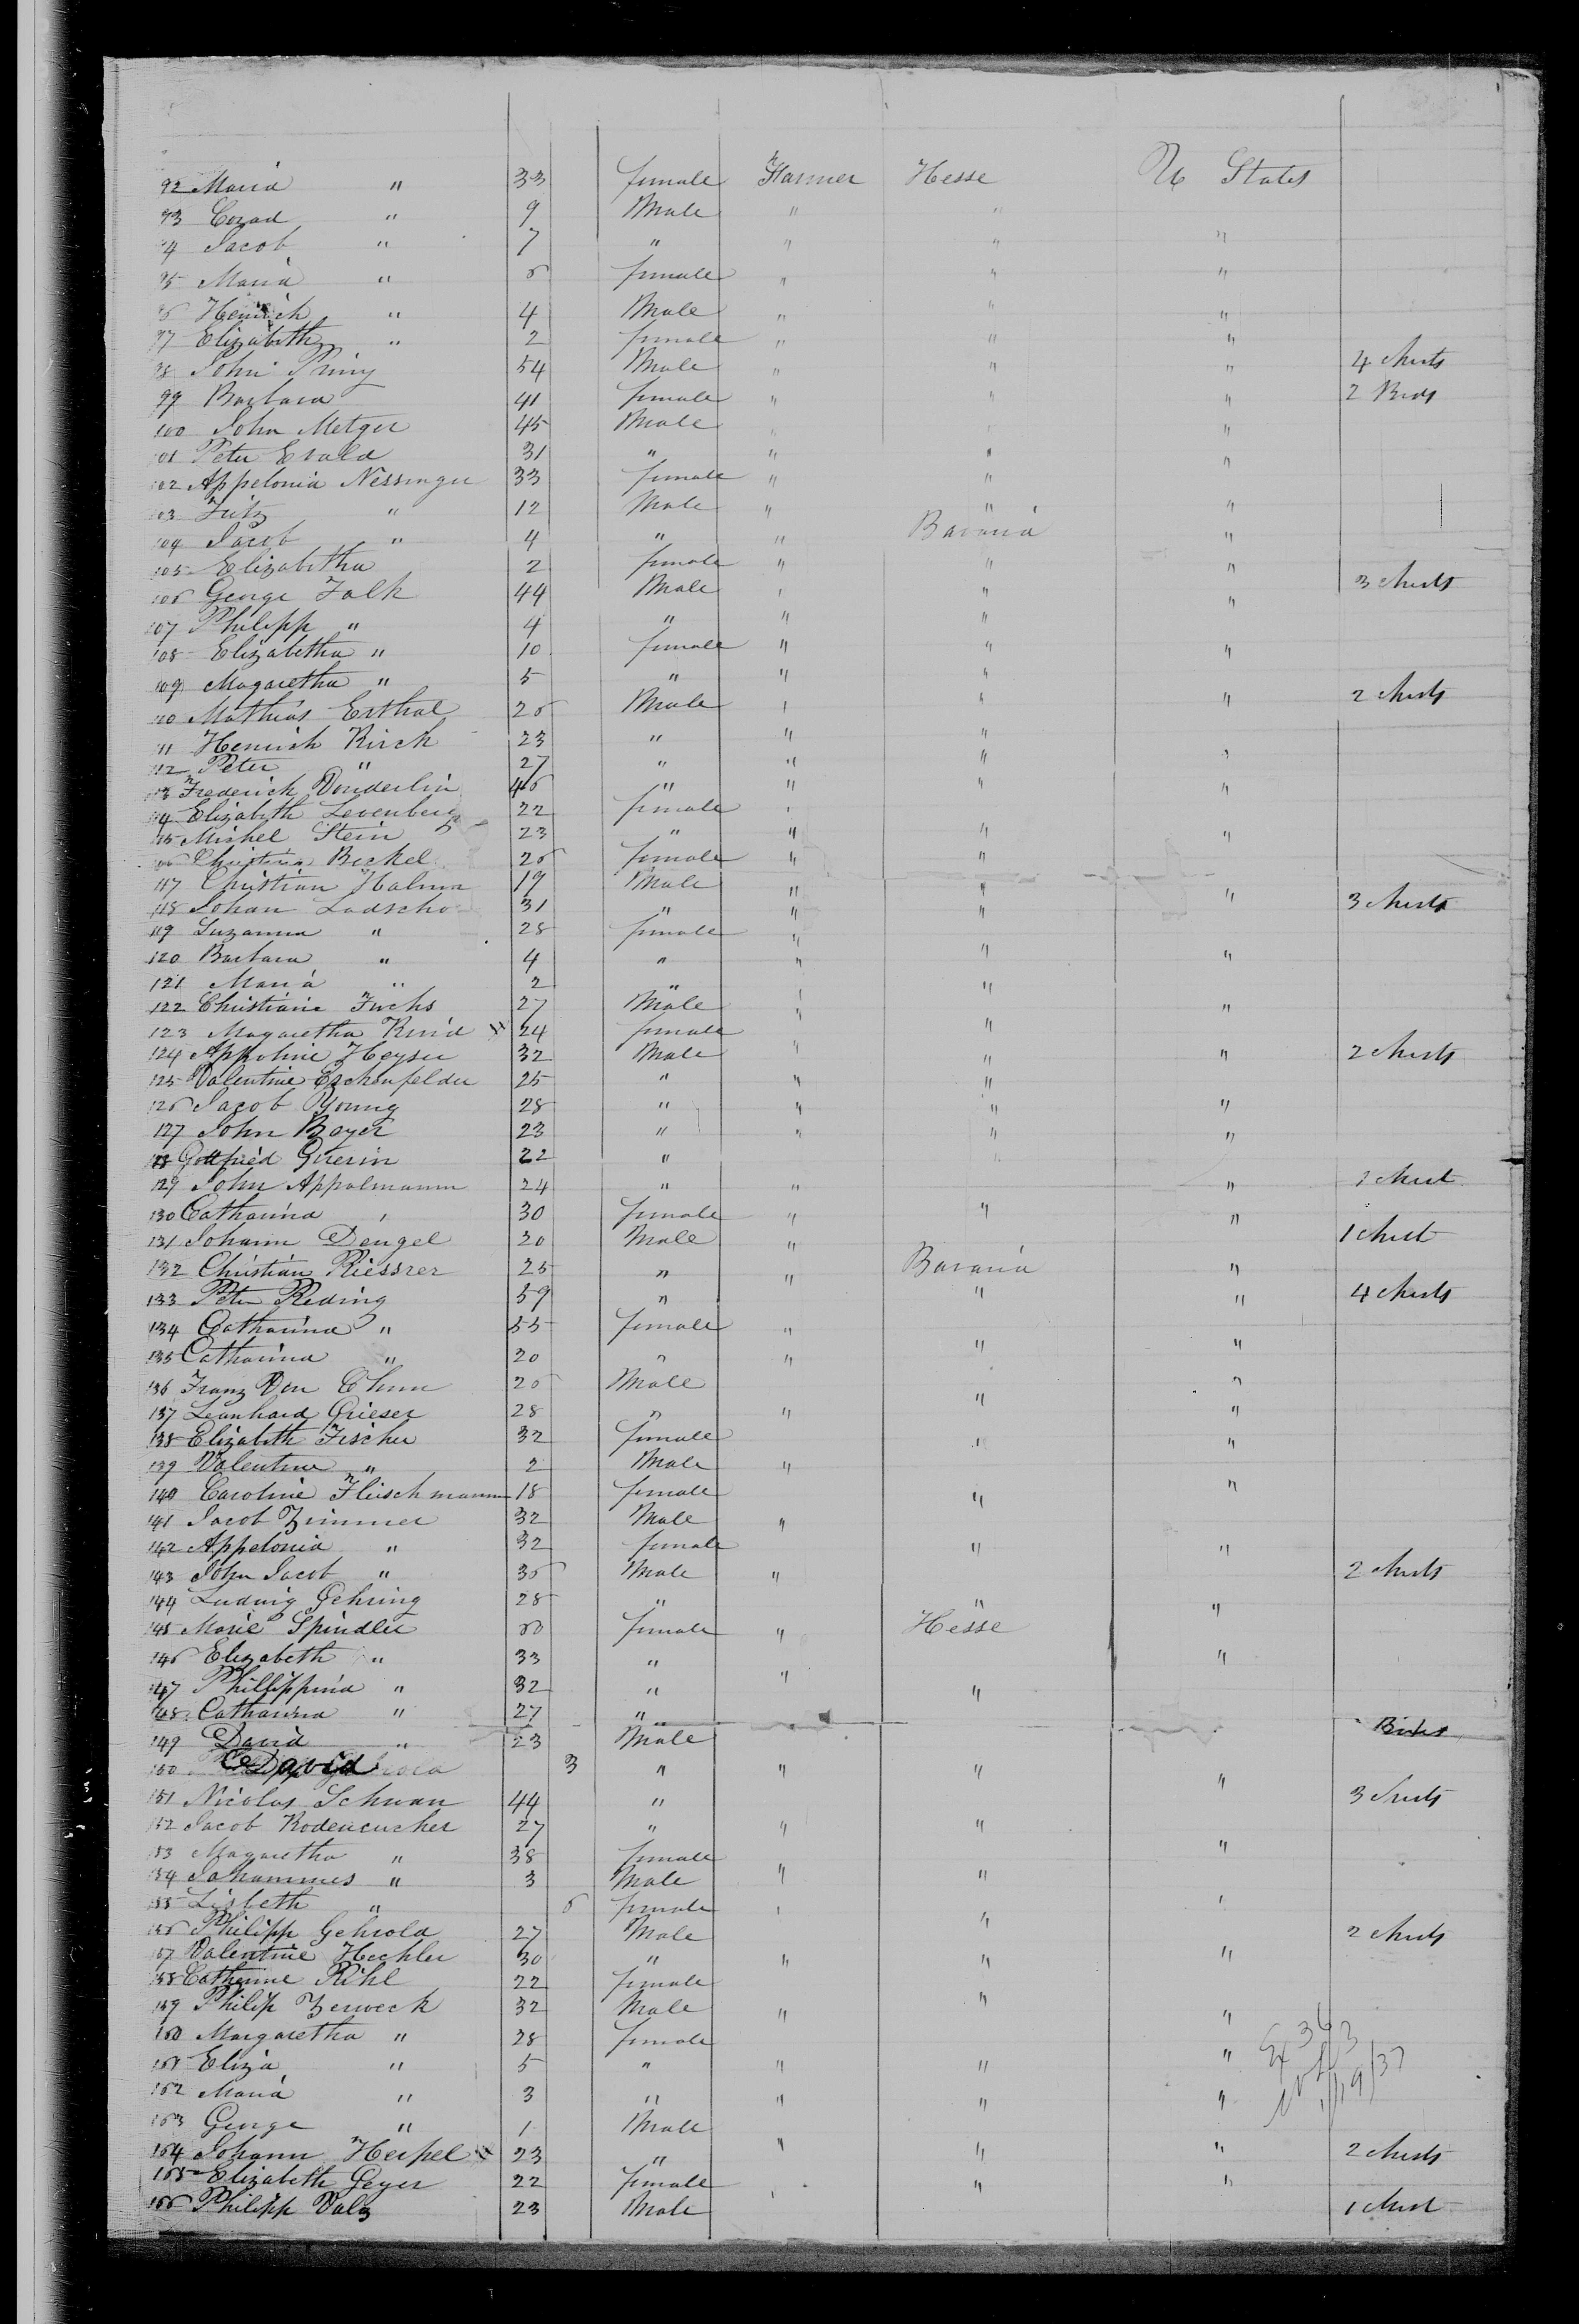 92 Maria " 33 female Farmer Hesse U States
93 Conrad " 9 Male " "
94 Jacob " 7 " " " "
95 Maria " 6 female " " "
96 Heinrich " 4 Male " " "
97 Elizabeth " 2 female " " "
98 John Priny 54 Male " " " 4 Chests
99 Barbara 41 female " " " 2 Beds
100 John Metger 45 Male " " "
101 Peter Evald 31 " " " "
102 Appelonia Nessinger 33 female " "
103 Fritz " 12 Male " " "
104 Jacob " 4 " " Bavaria "
105 Elizabetha 2 female " " "
106 George Falk 44 Male " " " 3 Chests
107 Philipp " 4 " " "
108 Elizabetha " 10 female " " "
109 Magaretha " 5 " " "
110 Mathias Erthal 26 Male " " " 2 Chests
111 Heinrich Kirch 23 " " "
112 Peter " 27 " " " "
113 Frederich Donderlin 46 " " " "
114 Elizabeth Levenberg 22 female "
115 Mishel Stein 23 " " " "
116 Christina Beckel 26 female " "
117 Christian Halma 19 Male " " "
118 Johan Ladscho 31 " " " 3 Chests
119 Suzanna " 28 female "
120 Barbara " 4 " " " "
121 Maria " 2 " "
122 Christiane Fuchs 27 Male " "
123 Magaretha 24 female "
124 Appoline Heyser 32 Male " " " 2 Chests
125 Valentine Eschenfelder 25 " " "
126 Jacob Young 28 " " " "
127 John Bayer 23 " " " "
128 Gottfried Guerin 22 " "
129 John Appolmann 24 " " " 1 Chest
130 Catharina " 30 female " " "
131 Johann Dengel 20 Male " 1 Chest
132 Christian Riessrer 25 " " Bavaria "
133 Peter Reding 59 " " " 4 Chests
134 Catharina " 55 female "
135 Catharina " 20 " " " "
136 Franz Von 26 Male "
137 Leonhard Grieser 28 " " " "
138 Elizabeth Fischer 32 female " "
139 Valentine " 2 Male "
140 Caroline Fleischmann 18 female " "
141 Jacob Zimmer 32 Male "
142 Appelonia " 32 female " "
143 John Jacob " 36 Male " 2 Chests
144 Ludwig Gehring 28 " "
145 Marie Spindler 60 female " Hesse "
146 Elizabeth " 33 " "
147 Phillippina " 32 " " "
148 Catharina " 27 "
149 David " 23 Male
150 David 3 " " " "
151 Nicolas Schwan 44 " 3 Chests
152 Jacob Rodencucher 27 " " "
153 Magaretha " 38 female "
154 Johannes " 3 Male " "
155 Lisbeth " 6 female " "
156 Philipp Gehrold 27 Male " 2 Chests
157 Valentine Hechler 30 " " " "
158 Catherine Rihl 22 female
159 Philip Zerweck 32 Male " " "
160 Margaretha " 28 female
161 Eliza " 5 " " " "
162 Maria " 3 " " " "
163 George " 1 Male
164 Johann Herpel 23 " " " " 2 Chests
165 Elizabeth Geyer 22 female " " "
166 Philipp Valz 23 Male 1 Chest